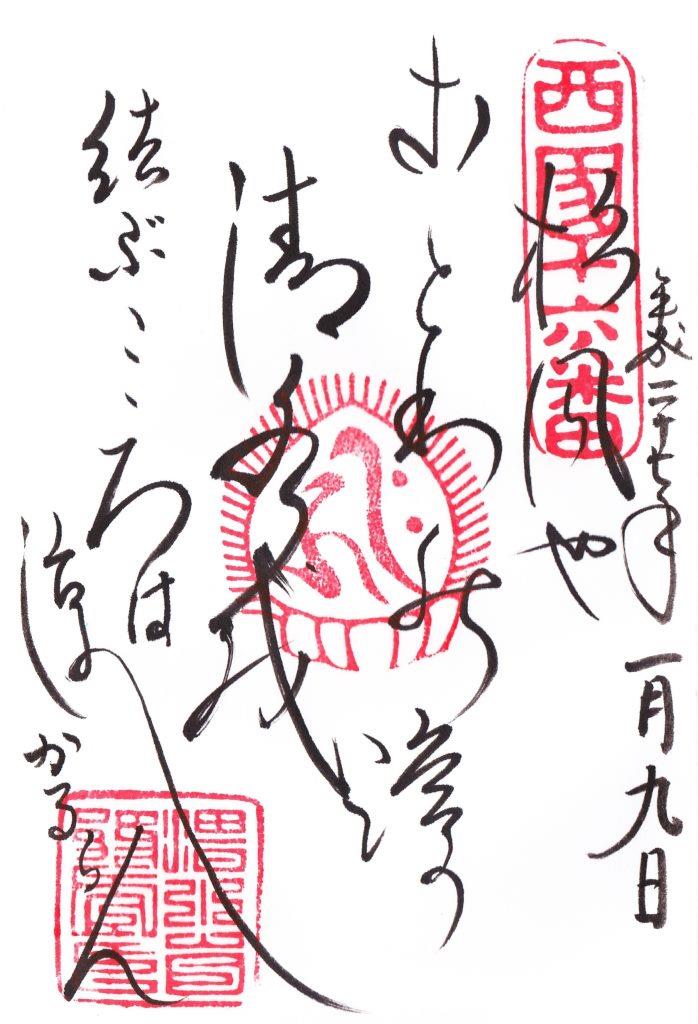 平成二十七年一月九日
西國十六番
松風や
おとわの瀧の
清水を
結ぶこころは
涼しかるらん